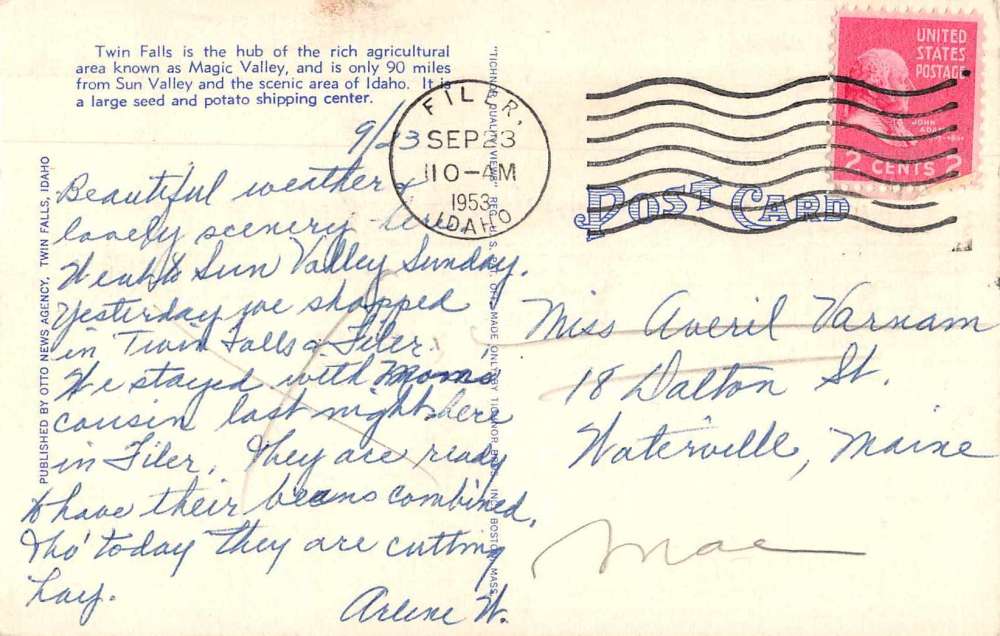 Twin Falls is the hub of the rich agricultural
area known as Magic Valley, and is only 90 miles
from Sun Valley and the scenic area of Idaho. It is
a large seed and potato shipping center.
9/23
Beautiful weather &
lovely scenery here.
Went to Sun Valley Sunday.
Yesterday we shopped
in Twin Falls & Filer.
We stayed with Mom's
cousin last night here
in Filer. They are ready
to have their beans combined,
tho' today they are cutting
hay.
Arlene W.
PUBLISHED BY OTTO NEWS AGENCY, TWIN FALLS, IDAHO
"TICHNOR QUALITY VIEWS" REG. U. S. PAT. OFF. MADE ONLY BY TICHNOR BROS. INC. BOSTON, MASS.
FILER,
SEP 23
11 0-AM
1953
IDAHO
UNITED
STATES
POSTAGE
JOHN
ADAMS
2 CENTS 2
POST CARD
Miss Averil Varnam
18 Dalton St.
Waterville, Maine
Mae